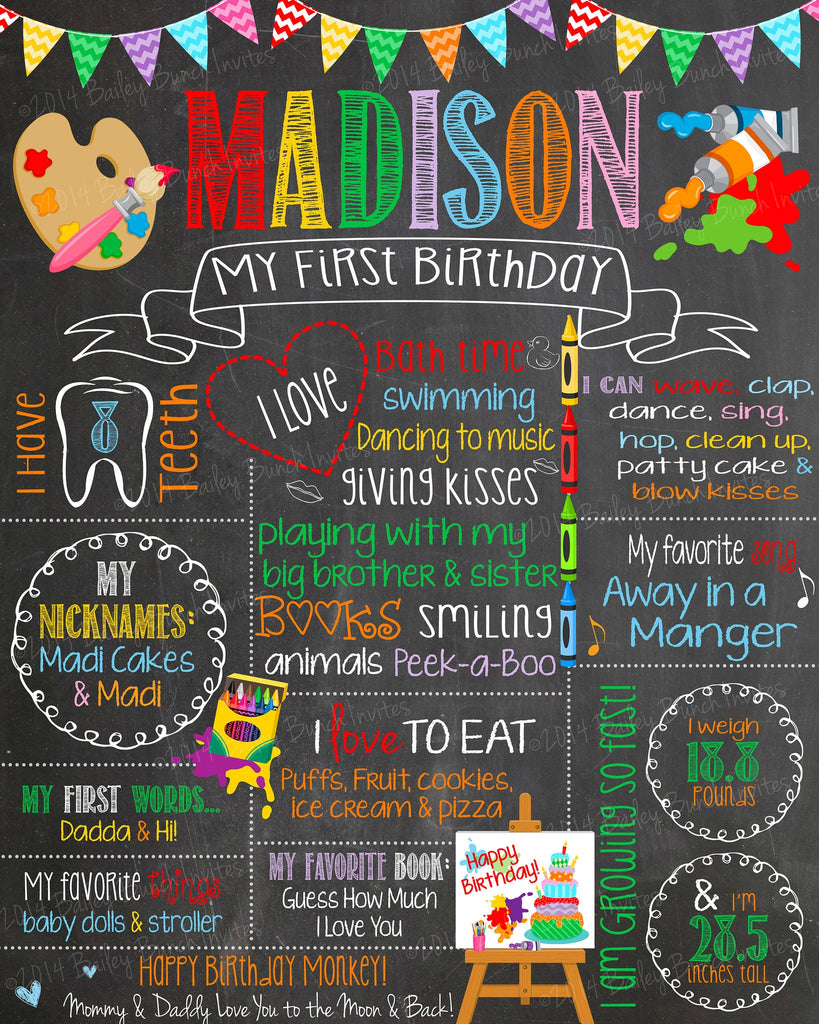 MADISON
My First Birthday
I Have
8
Teeth
I LOVE
Bath time &
swimming
Dancing to music
giving kisses
playing with my
big brother & sister
BOOKS smiling
animals Peek-a-Boo
I CAN wave, clap,
dance, sing,
hop, clean up,
patty cake &
blow kisses
My favorite song
Away in a
Manger
MY
NICKNAMES:
Madi Cakes
& Madi
I love TO EAT
Puffs, Fruit, cookies,
ice cream & pizza
I am Growing so fast!
I weigh
18.8
Pounds
& I'm
28.5
inches tall
MY FIRST WORDS...
Dadda & Hi!
My favorite things
baby dolls & stroller
MY FAVORITE BOOK
Guess How Much
I Love You
Happy
Birthday!
Happy Birthday Monkey!
Mommy & Daddy Love You to the Moon & Back!
©2014 Bailey Bunch Invites